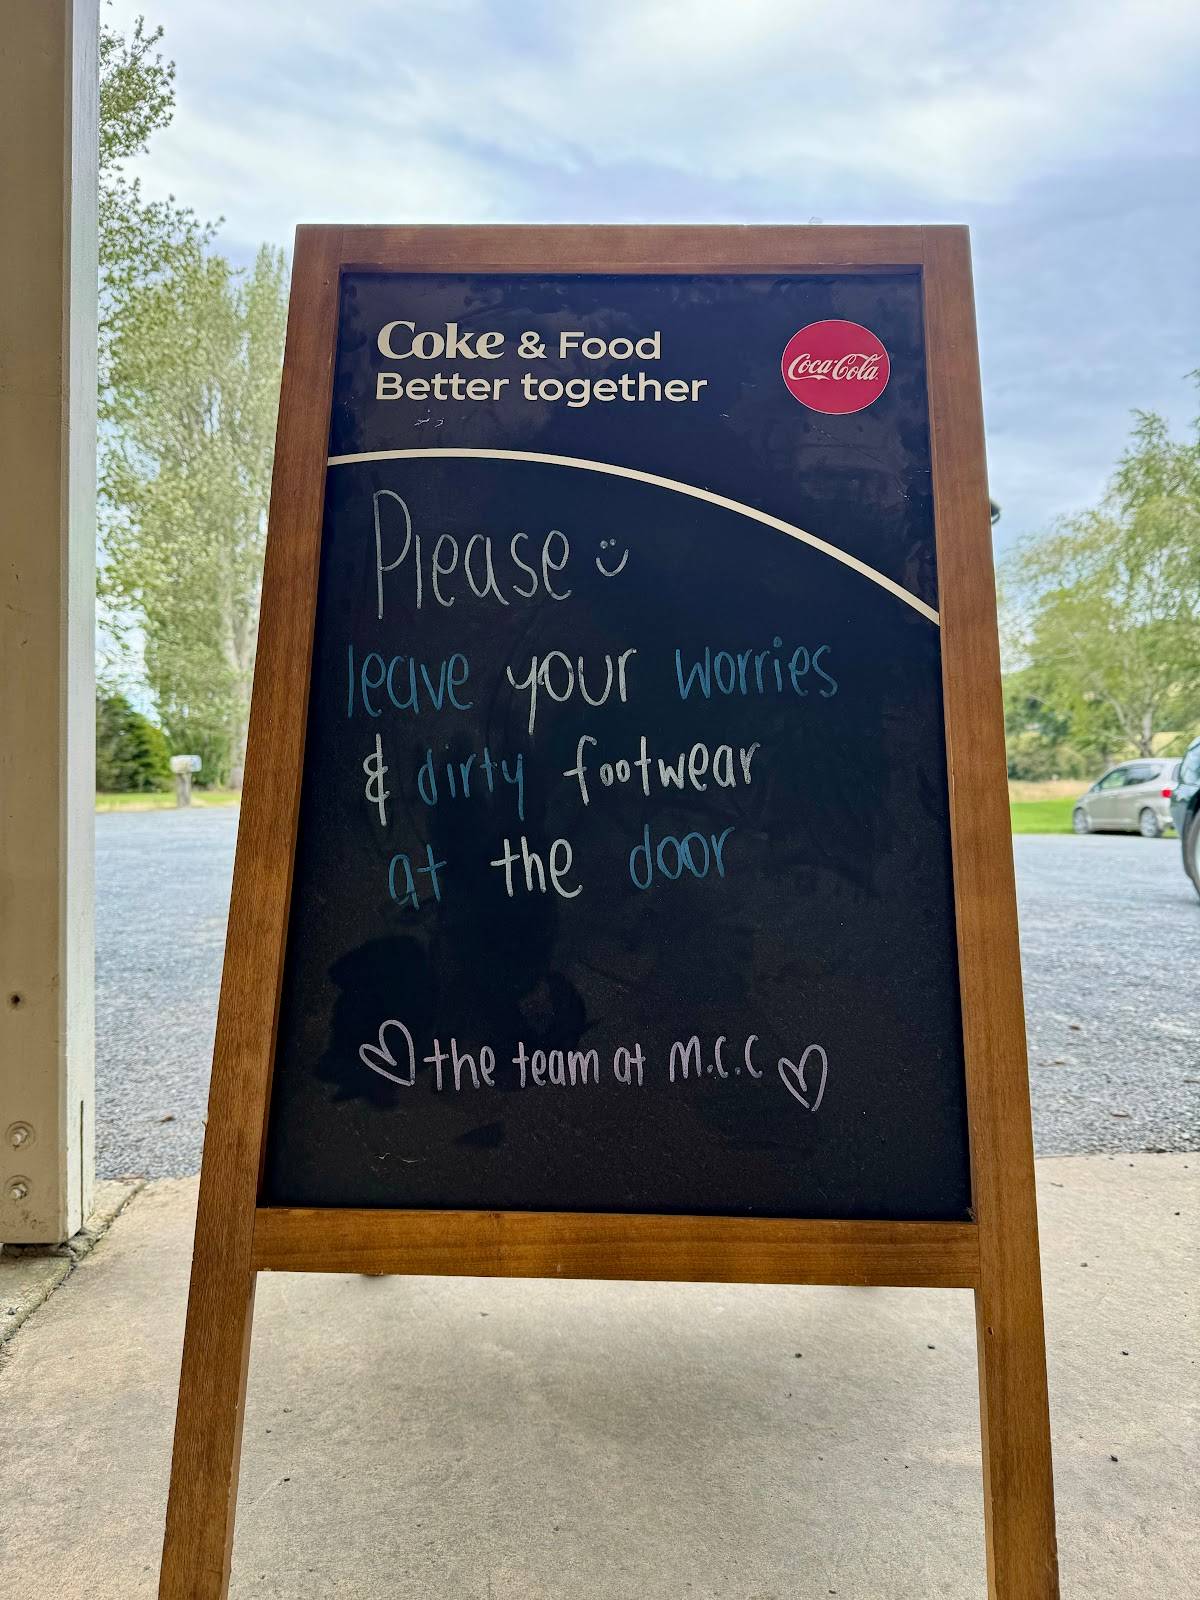 Coke & Food
Better together
Coca-Cola
Please
leave your worries
& dirty footwear
at the door
the team at M.C.C